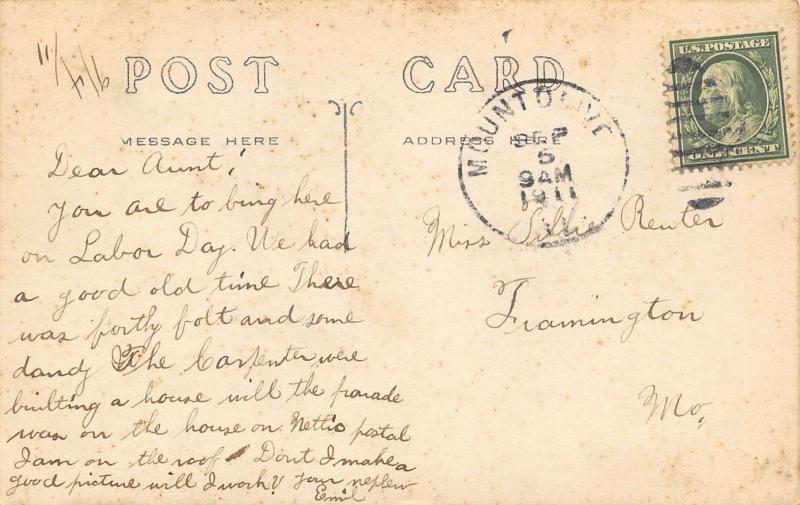 11/7/16
POST CARD
MESSAGE HERE
ADDRESS HERE
U.S. POSTAGE
ONE CENT
MOUNT OLIVE
SEP
5
9 AM
1911
Dear Aunt;
You are to bing here
on Labor Day. We had
a good old time There
was fortly folt and some
dandy The Carpenter were
builting a house will the parade
was on the house on Nettis postal
I am on the roof Dont I make a
good picture will I work? Your nephew
Emil
Miss Lillie Reuter
Framington
Mo.